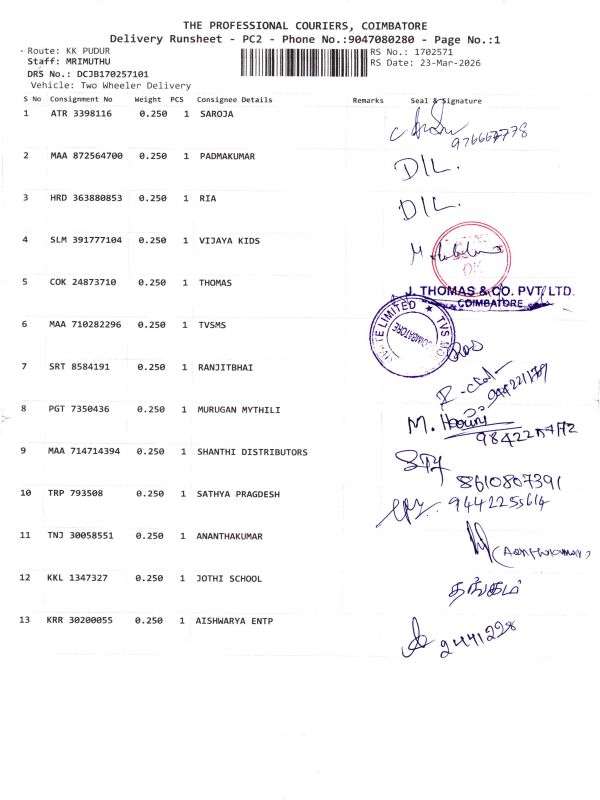 THE PROFESSIONAL COURIERS, COIMBATORE
Delivery Runsheet - PC2 - Phone No.:9047080280 - Page No.:1
Route: KK PUDUR
RS No.: 1702571
Staff: MRIMUTHU
RS Date: 23-Mar-2026
DRS No.: DCJB170257101
Vehicle: Two Wheeler Delivery
S No Consignment No Weight PCS Consignee Details Remarks Seal & Signature
1 ATR 3398116 0.250 1 SAROJA
2 MAA 872564700 0.250 1 PADMAKUMAR D/L.
3 HRD 363880853 0.250 1 RIA D/L.
4 SLM 391777104 0.250 1 VIJAYA KIDS
5 COK 24873710 0.250 1 THOMAS J. THOMAS & CO. PVT. LTD.
COIMBATORE
6 MAA 710282296 0.250 1 TVSMS
7 SRT 8584191 0.250 1 RANJITBHAI
8 PGT 7350436 0.250 1 MURUGAN MYTHILI M.
9 MAA 714714394 0.250 1 SHANTHI DISTRIBUTORS
8610807391
10 TRP 793508 0.250 1 SATHYA PRAGDESH 9442255614
11 TNJ 30058551 0.250 1 ANANTHAKUMAR
12 KKL 1347327 0.250 1 JOTHI SCHOOL தங்கம்
13 KRR 30200055 0.250 1 AISHWARYA ENTP 2441228